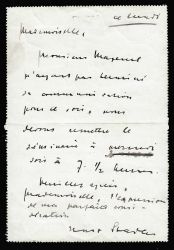 ce lundi
Mademoiselle,
Monsieur
n'ayant pas terminé
sa communication
pour ce soir, nous
devons remettre le
séminaire à
soir à 7. 1/2 heures.
Veuillez agréer,
mademoiselle, l'expression
de ma parfaite consi-
dération